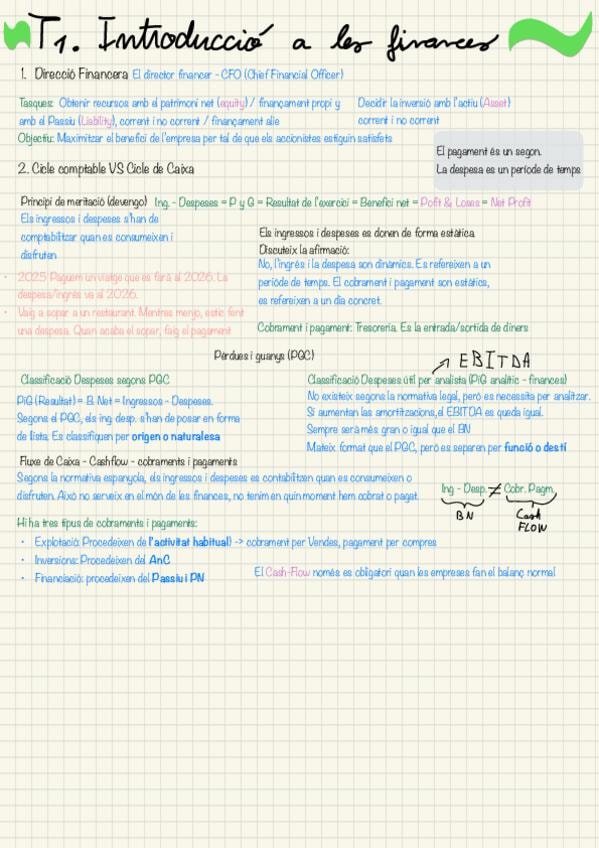 T1. Introducció a les finances
1. Direcció Financera El director financer - CFO (Chief Financial Officer)
Tasques: Obtenir recursos amb el patrimoni net (equity) / finançament propi y
amb el Passiu (Liability), corrent i no corrent / finançament alie
Decidir la inversió amb l'actiu (Asset)
corrent i no corrent
Objectiu: Maximitzar el benefici de l'empresa per tal de que els accionistes estiguin satisfets
El pagament és un segon.
La despesa es un període de temps
2. Cicle comptable VS Cicle de Caixa
Principi de meritació (devengo) Ing. - Despeses = P y G = Resultat de l'exercici = Benefici net = Pofit & Loses = Net Profit
Els ingressos i despeses s'han de
comptabilitzar quan es consumeixen i
disfruten
• 2025 Paguem un viatge que es farà al 2026. La
despesa/ingrés va al 2026.
• Vaig a sopar a un restaurant. Mentres menjo, estic fent
una despesa. Quan acaba el sopar, faig el pagament
Els ingressos i despeses es donen de forma estàtica
Discuteix la afirmació:
No, l'ingrés i la despesa son dinàmics. Es refereixen a un
període de temps. El cobrament i pagament son estàtics,
es refereixen a un dia concret.
Cobrament i pagament: Tresoreria. Es la entrada/sortida de diners
Pèrdues i guanys (PGC)
EBITDA
Classificació Despeses segons PGC
PiG (Resultat) = B. Net = Ingressos - Despeses.
Segons el PGC, els ing. desp. s'han de posar en forma
de llista. Es classifiquen per origen o naturalesa
Classificació Despeses útil per analista (PiG analític - finances)
No existeix segons la normativa legal, però es necessita per analitzar.
Si aumentan las amortitzacions, el EBITDA es queda igual.
Sempre serà més gran o igual que el BN
Mateix format que el PGC, però es separen per funció o destí
Fluxe de Caixa - Cashflow - cobraments i pagaments
Segons la normativa espanyola, els ingressos i despeses es contabilitzen quan es consumeixen o
disfruten. Això no serveix en el món de les finances, no tenim en quin moment hem cobrat o pagat.
Ing - Desp. ≠ Cobr. Pagm.
BN Cash
FLOW
Hi ha tres tipus de cobraments i pagaments:
• Explotació: Procedeixen de l'activitat habitual) -> cobrament per Vendes, pagament per compres
• Inversions: Procedeixen del AnC
• Financiació: procedeixen del Passiu i PN
El Cash-Flow només es obligatori quan les empreses fan el balanç normal